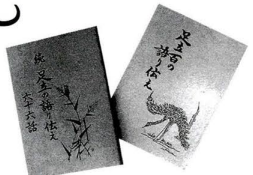 続 足立の語り伝え
六十六話
足立百の
語り伝え